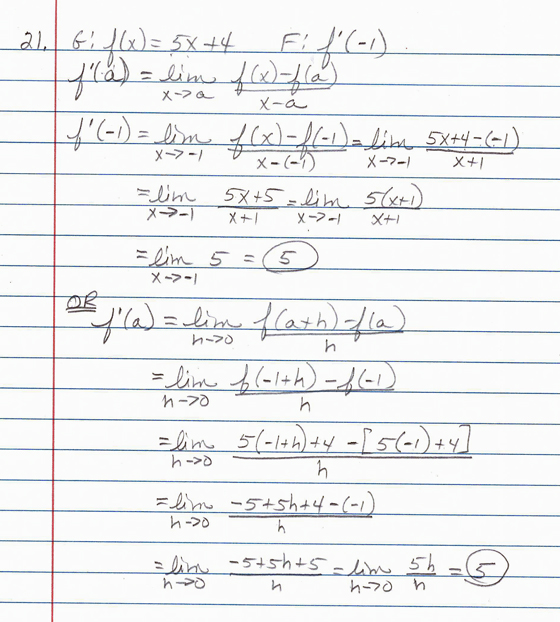 21. G: f(x) = 5x+4 F: f'(-1)
f'(a) = lim x→a (f(x)-f(a))/(x-a)
f'(-1) = lim x→-1 (f(x)-f(-1))/(x-(-1)) = lim x→-1 (5x+4-(-1))/(x+1)
= lim x→-1 (5x+5)/(x+1) = lim x→-1 5(x+1)/(x+1)
= lim x→-1 5 = 5
OR
f'(a) = lim h→0 (f(a+h)-f(a))/h
= lim h→0 (f(-1+h)-f(-1))/h
= lim h→0 (5(-1+h)+4-[5(-1)+4])/h
= lim h→0 (-5+5h+4-(-1))/h
= lim h→0 (-5+5h+5)/h = lim h→0 5h/h = 5